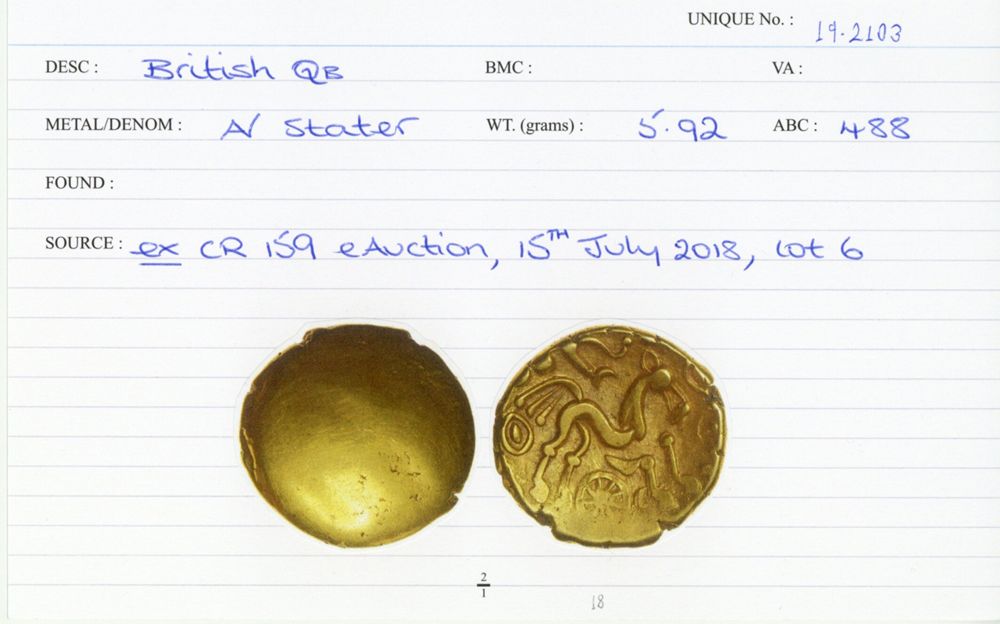 UNIQUE No. : 19.2103
DESC : British QB BMC : VA :
METAL/DENOM : A/ Stater WT. (grams) : 5.92 ABC : 488
FOUND :
SOURCE : ex CR 159 eAuction, 15TH July 2018, lot 6
2
1
18